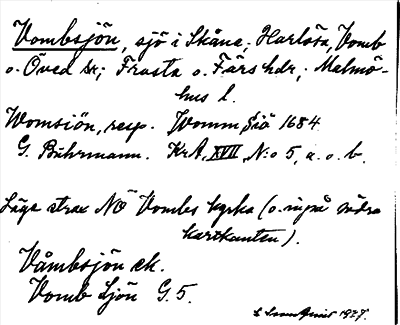 Vombsjön, sjö i Skåne; Harlösa, Vomb
o. Öved sn; Frosta o. Färs hdr; Malmö-
hus l.
Womsiön, resp. Womm Siö 1684
G. Buhrmann. KrA, XVII, N:o 5, a. o. b.
Läge strax NÖ Vombs kyrka (o. inpå södra
kartkanten).
Våmbsjön ek.
Vomb Sjön G. 5.
1927.